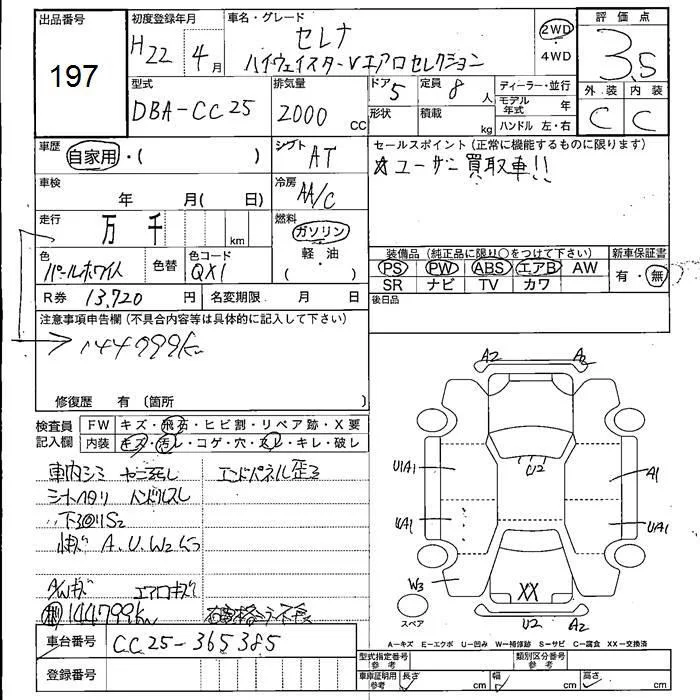 出品番号
197
初度登録年月
H22 4月
車名・グレード
セレナ
ハイウェイスターVエアロセレクション
2WD
・
4WD
評価点
3.5
外装 内装
C C
型式
DBA-CC25
排気量
2000 CC
ドア 5
定員 8人
形状
積載 kg
ディーラー・並行
モデル年式 年
ハンドル 左・右
車歴
自家用・( )
シフト AT
セールスポイント(正常に機能するものに限ります)
☆ユーザー買取車!!
車検
年 月( 日)
冷房 AA/C
走行
万 千 km
燃料
ガソリン
軽・油
( )
色
パールホワイト
色替
色コード
QX1
装備品(純正品に限り○をつけて下さい)
PS PW ABS エアB AW
SR ナビ TV カワ
新車保証書
有・無
R券 13,720 円
名変期限 月 日
後日品
注意事項申告欄(不具合内容等は具体的に記入して下さい)
144799km
修復歴 有(箇所 )
検査員
記入欄
FW キズ・飛石・ヒビ割・リペア跡・X要
内装 キズ・汚レ・コゲ・穴・スレ・キレ・破レ
車内シミ
エンドパネル歪ミ
シートヘタリ ハンドルスレ
下回りS2
A.U.W2
A/Wキズ エアロキズ
144799km
車台番号 CC25-365385
登録番号
A2 A2
U2
U1A1
A1
U1A1
UA1
W3
XX
スペア
U2 A2
A-キズ E-エクボ U-凹み W-補修跡 S-サビ C-腐食 XX-交換済
型式指定番号
参考
類別区分番号
参考
車庫証明用
参考
長さ cm
幅 cm
高さ cm